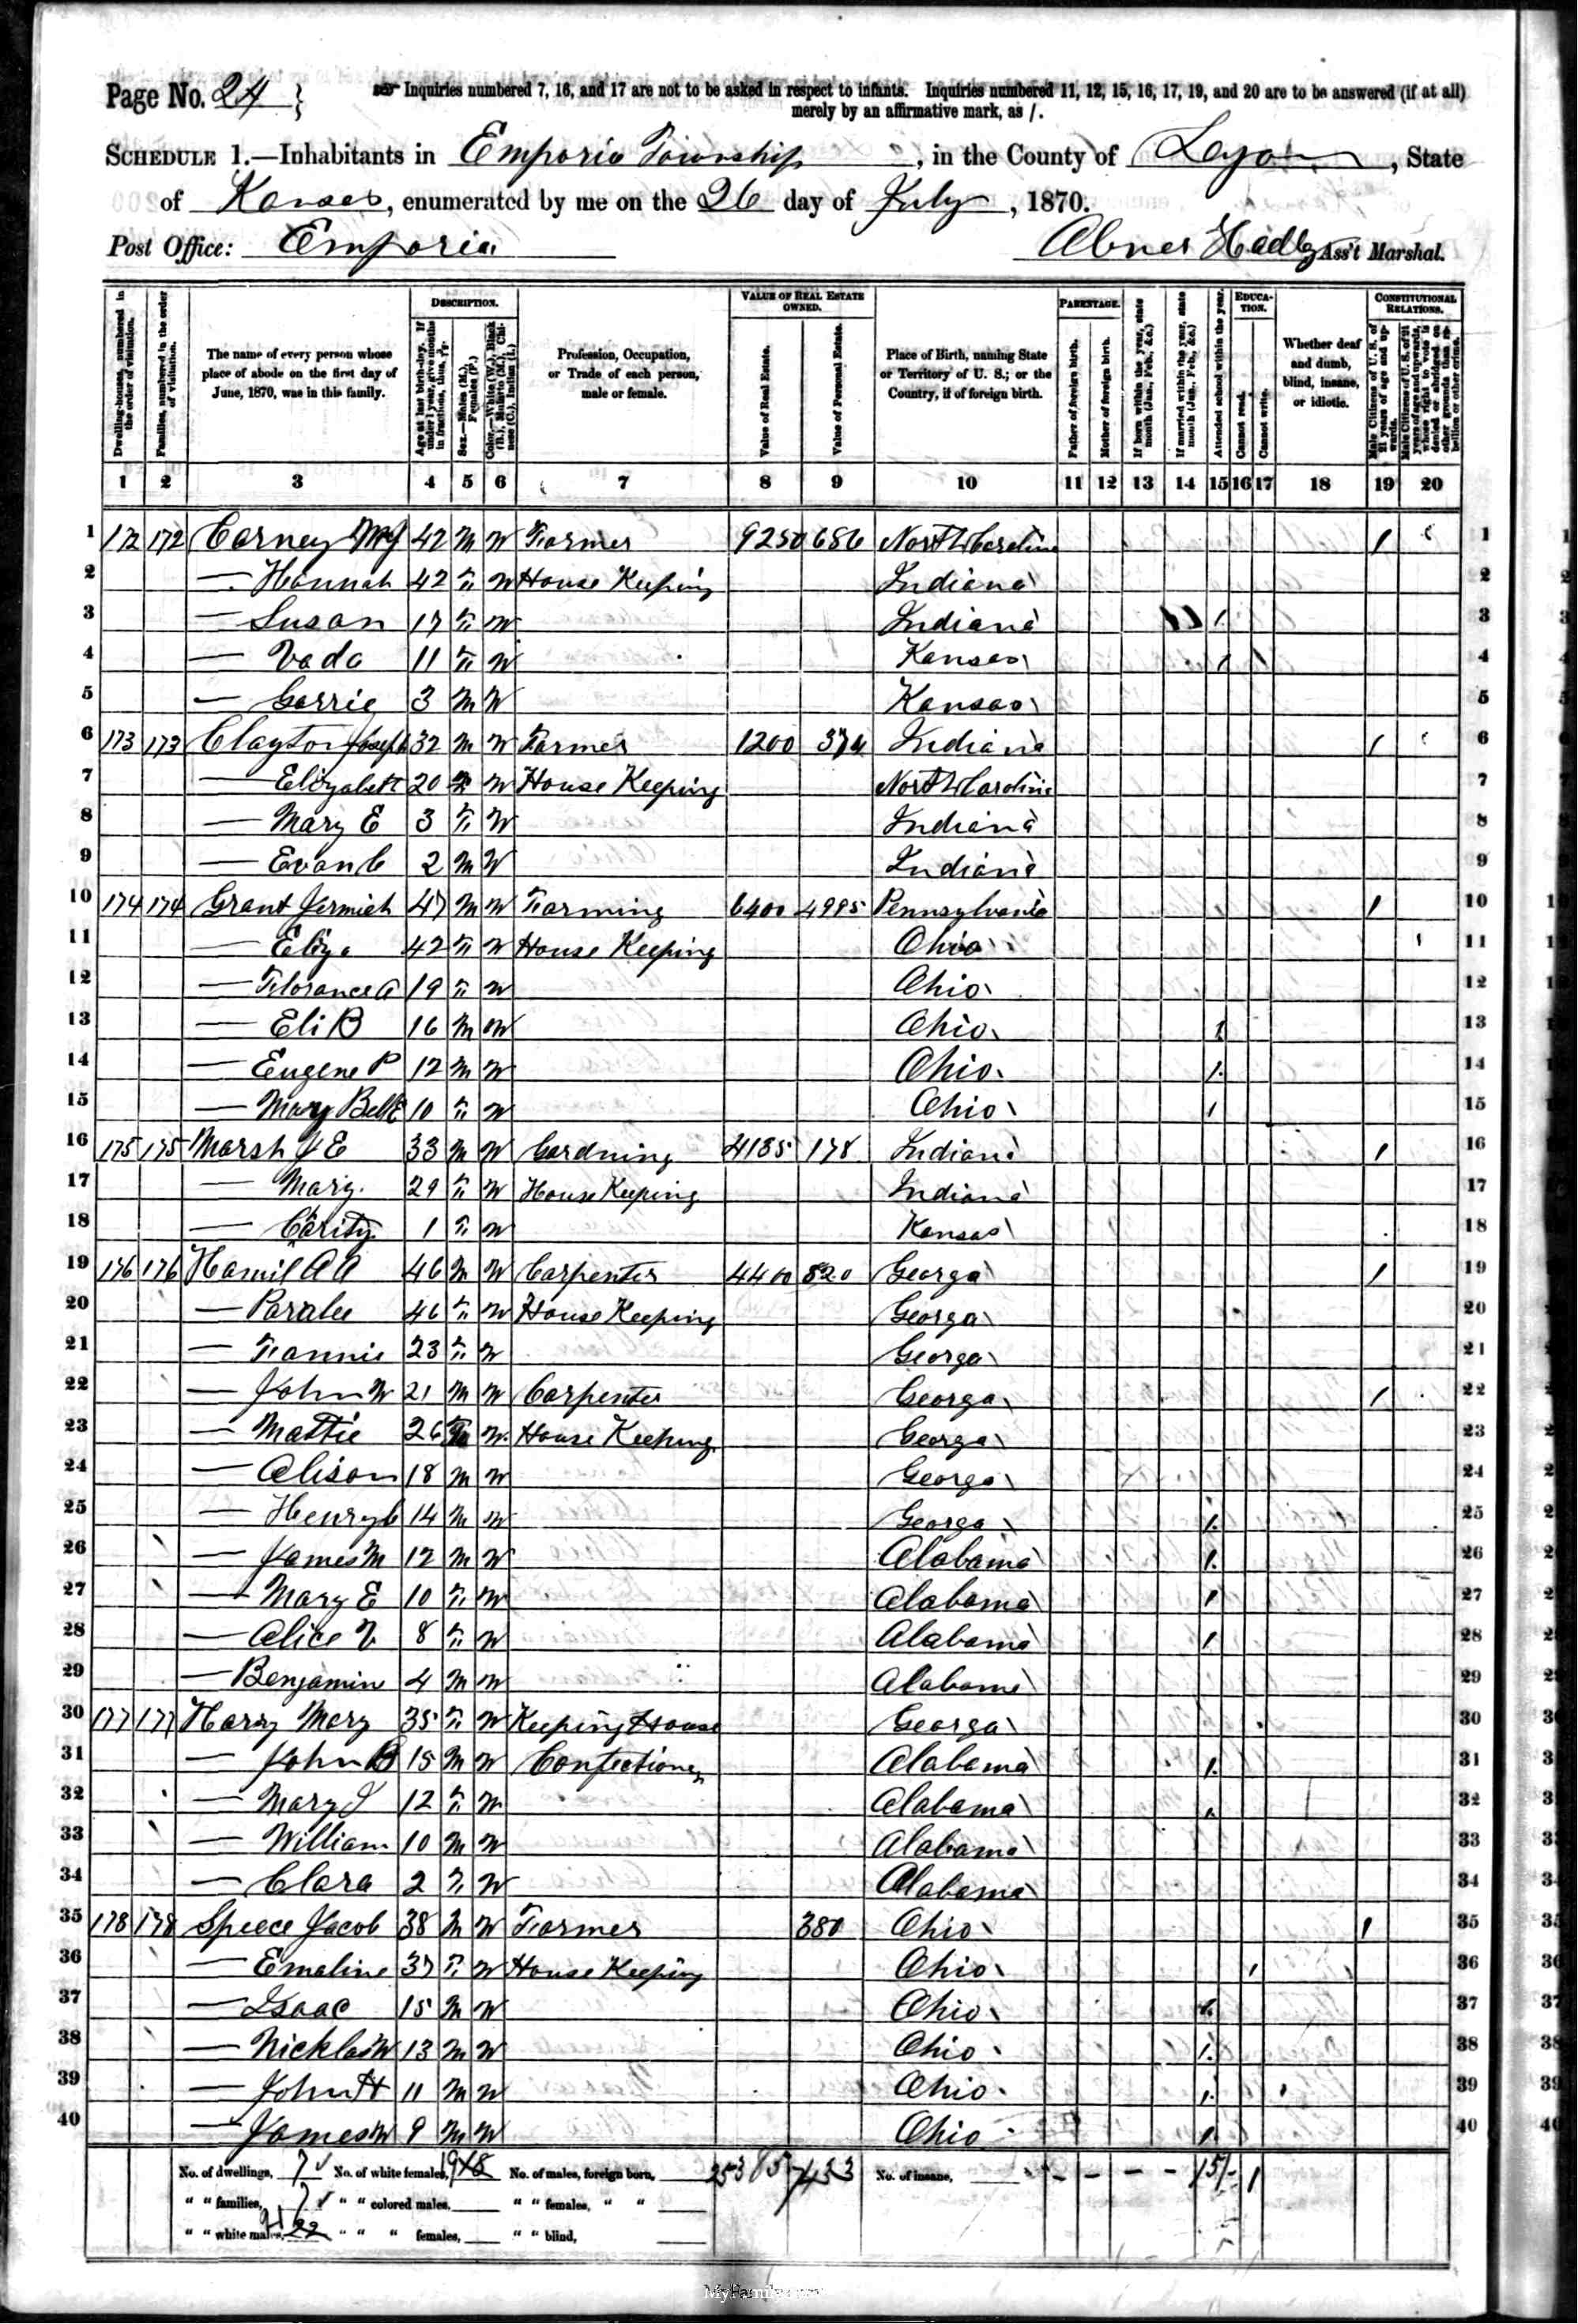 Page No. 24
Inquiries numbered 7, 16, and 17 are not to be asked in respect to infants. Inquiries numbered 11, 12, 15, 16, 17, 19, and 20 are to be answered (if at all)
merely by an affirmative mark, as /.
SCHEDULE 1.—Inhabitants in Emporia Township, in the County of Lyon, State
of Kansas, enumerated by me on the 26 day of July, 1870.
Post Office: Emporia
Abner Hadley Ass't Marshal.
Dwelling-houses, numbered in the order of visitation.
Families, numbered in the order of visitation.
The name of every person whose place of abode on the first day of June, 1870, was in this family.
DESCRIPTION.
Age at last birth-day. If under 1 year, give months in fractions, thus, 3/12.
Sex.—Males (M.), Females (F.)
Color.—White (W.), Black (B.), Mulatto (M.), Chinese (C.), Indian (I.)
Profession, Occupation, or Trade of each person, male or female.
VALUE OF REAL ESTATE OWNED.
Value of Real Estate.
Value of Personal Estate.
Place of Birth, naming State or Territory of U. S.; or the Country, if of foreign birth.
PARENTAGE.
Father of foreign birth.
Mother of foreign birth.
If born within the year, state month (Jan., Feb., &c.)
If married within the year, state month (Jan., Feb., &c.)
Attended school within the year.
EDUCATION.
Cannot read.
Cannot write.
Whether deaf and dumb, blind, insane, or idiotic.
CONSTITUTIONAL RELATIONS.
Male Citizens of U. S. of 21 years of age and upwards.
Male Citizens of U. S. of 21 years of age and upwards, whose right to vote is denied or abridged on other grounds than rebellion or other crime.
1 2 3 4 5 6 7 8 9 10 11 12 13 14 15 16 17 18 19 20
1 172 172 Carney 42 M W Farmer 9250 686 North Carolina / 1
2 — Hannah 42 F W House Keeping Indiana 2
3 — Susan 17 F W Indiana / 3
4 — Vada 11 F W Kansas / / 4
5 — Gerrie 3 M W Kansas 5
6 173 173 Clayton Joseph 32 M W Farmer 1200 Indiana / 6
7 — Elizabeth 20 F W House Keeping North Carolina 7
8 — Mary E 3 F W Indiana 8
9 — Evan C 2 M W Indiana 9
10 174 174 Grant Jermiah 47 M W Farming 6400 4995 Pennsylvania / 10
11 — Eliza 42 F W House Keeping Ohio 11
12 — Florance A 19 F W Ohio 12
13 — Eli B 16 M W Ohio / 13
14 — Eugene P 12 M W Ohio / 14
15 — Mary Belle 10 F W Ohio / 15
16 175 175 Marsh J E 33 M W Gardning 4135 178 Indiana / 16
17 — Mary 29 F W House Keeping Indiana 17
18 — Carity 1 F W Kansas 18
19 176 176 Hamil A A 46 M W Carpenter 4400 820 Georga / 19
20 — Paralee 46 F W House Keeping Georga 20
21 — Fannie 23 F W Georga 21
22 — John W 21 M W Carpenter Georga / 22
23 — Mattie 26 F W House Keeping Georga 23
24 — Alison 18 M W Georga 24
25 — Henry C 14 M W Georga / 25
26 — James M 12 M W Alabama / 26
27 — Mary E 10 F W Alabama / 27
28 — Alice V 8 F W Alabama / 28
29 — Benjamin 4 M W Alabama 29
30 177 177 Harry Mary 35 F W Keeping House Georga 30
31 — John B 15 M W Confectioner Alabama / 31
32 — Mary J 12 F W Alabama / 32
33 — William 10 M W Alabama 33
34 — Clara 2 F W Alabama 34
35 178 178 Speece Jacob 38 M W Farmer 380 Ohio / 35
36 — Emaline 37 F W House Keeping Ohio / 36
37 — Isaac 15 M W Ohio / 37
38 — Nicklas W 13 M W Ohio / 38
39 — John H 11 M W Ohio / 39
40 — James W 9 M W Ohio / 40
No. of dwellings, 7 No. of white females, 19 No. of males, foreign born, 7433 No. of insane, 15 1
" " families, 7 " " colored males, " " females, " "
" " white males, 21 " " " females, " " blind,
MyFamily.com